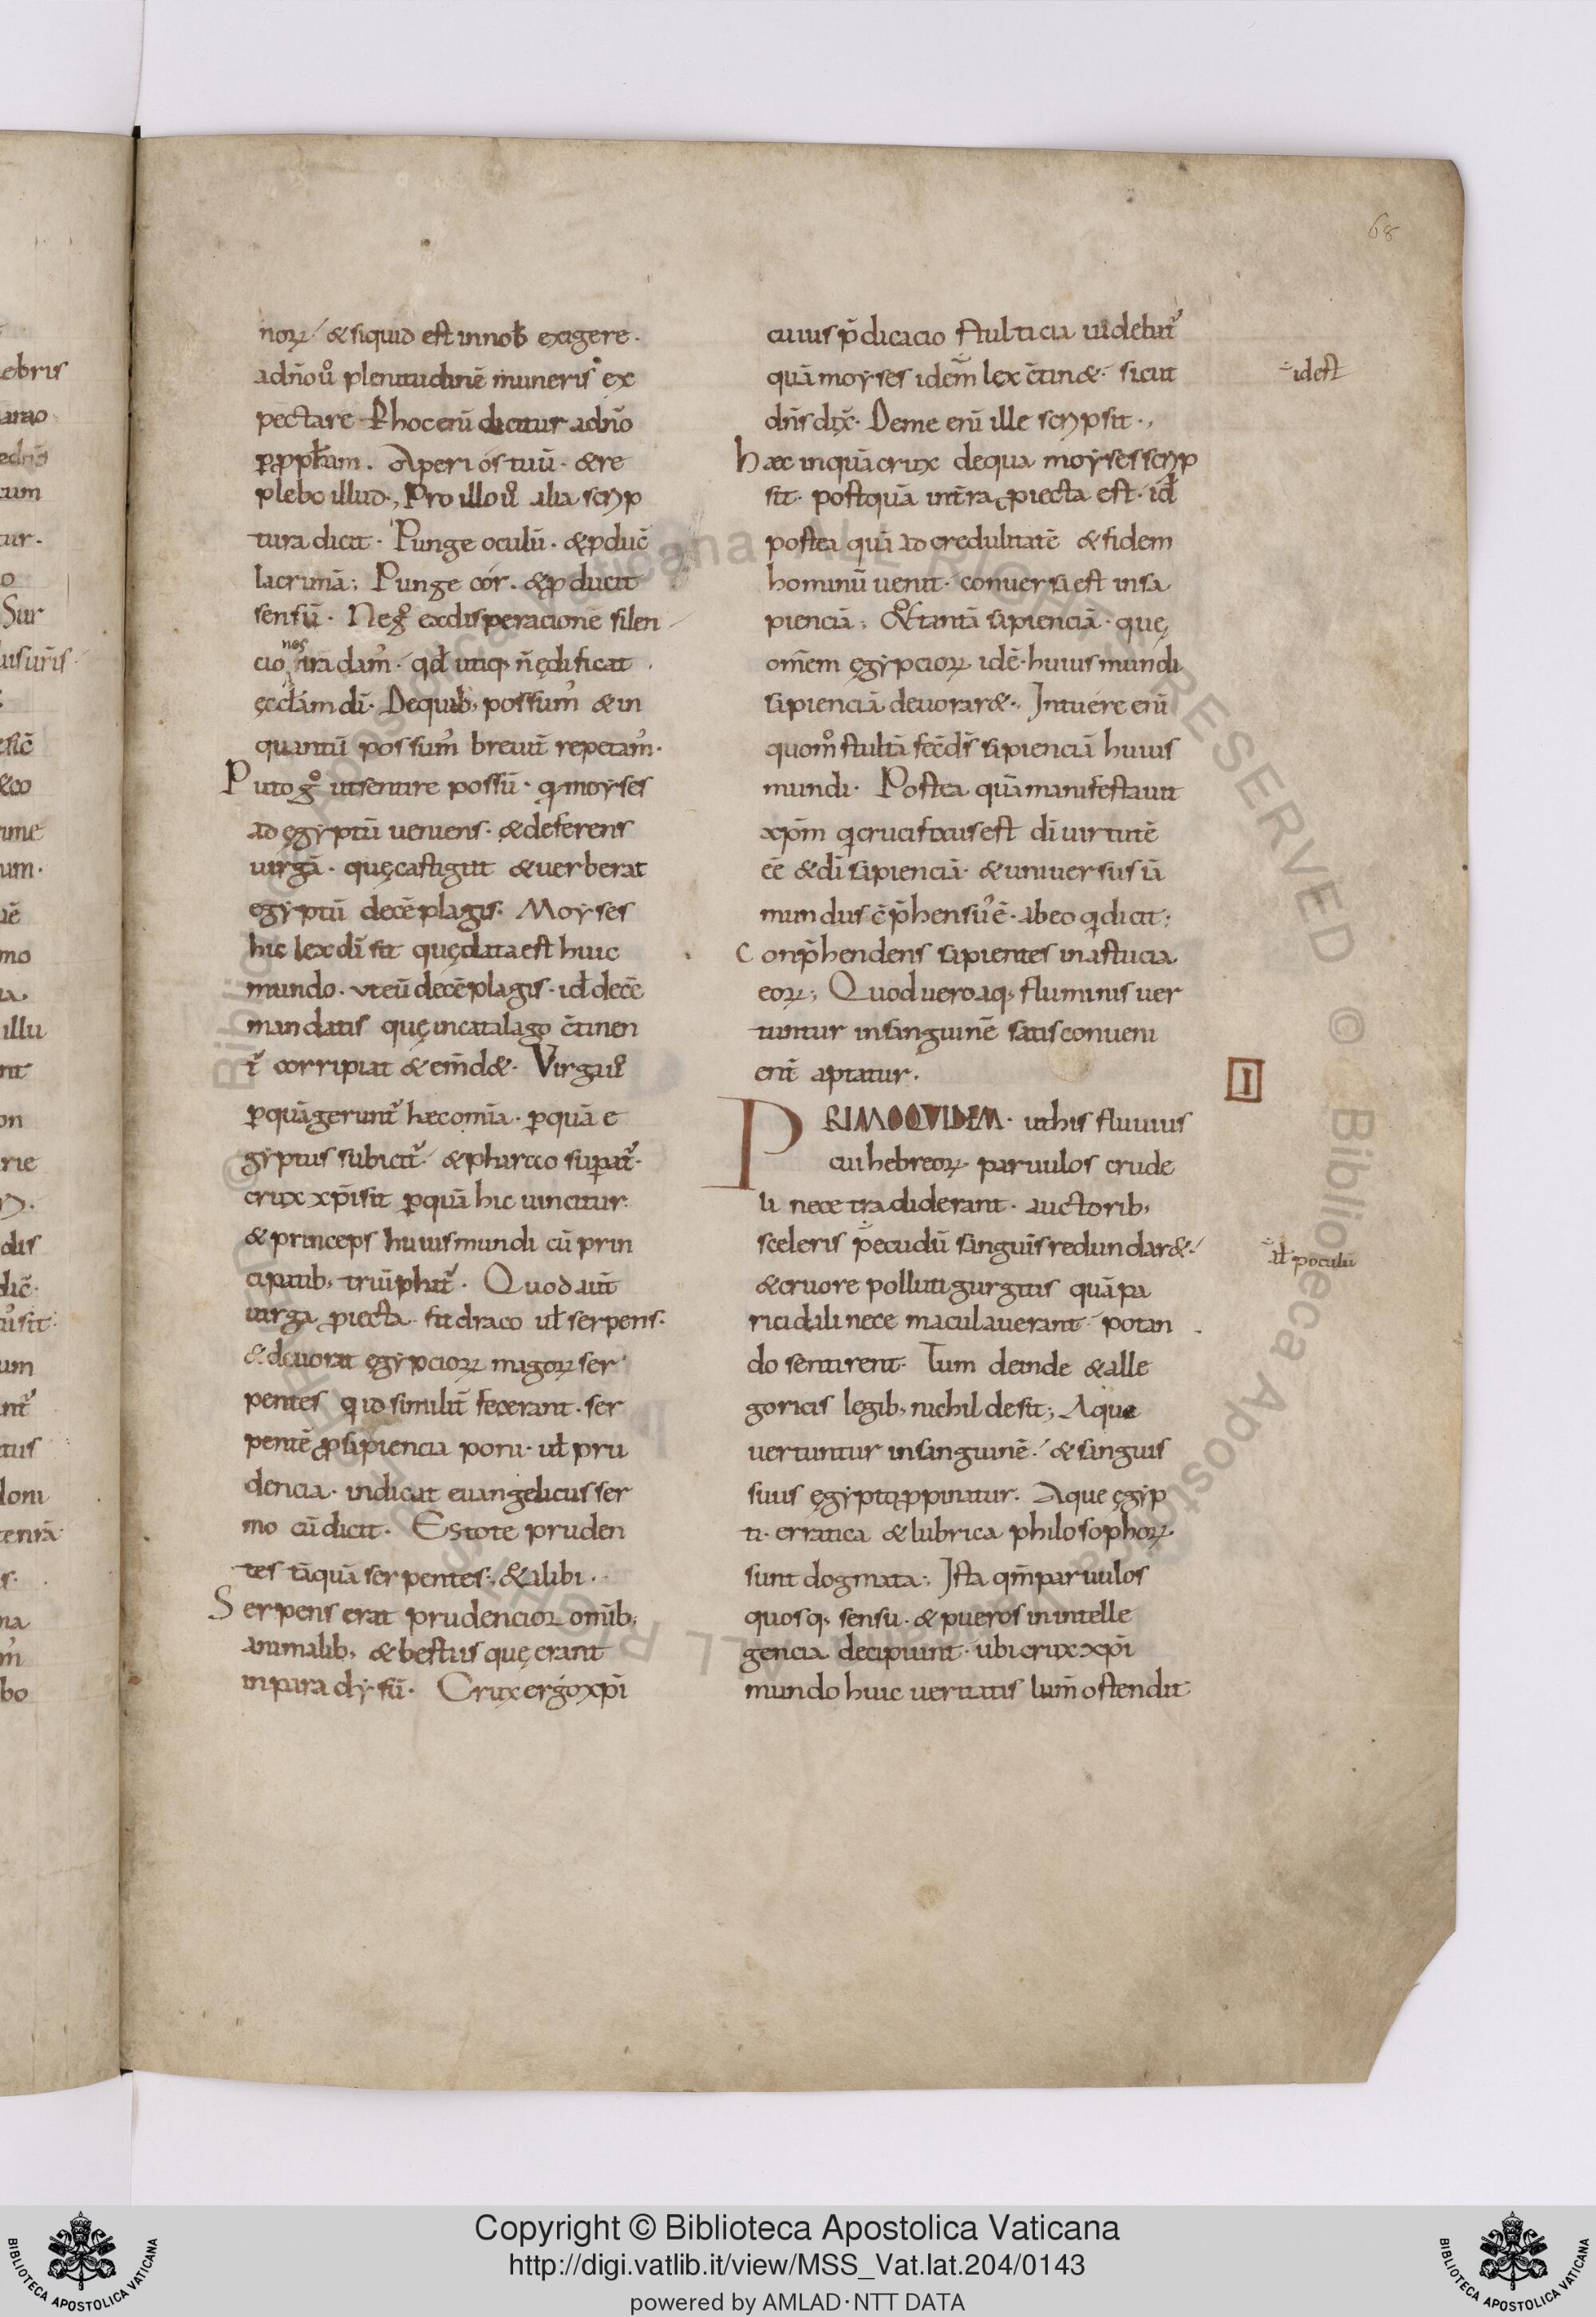 68
norꝝ· & siquid est in nob̄ exigere·
ad dn̄o ū plenitudinē muneris ex
pectare· Ob hoc enī dicitur ad dn̄o
ꝑ ꝓph̄am. Aperi ós tuū· & re
plebo illud·, Pro illo ū alia scrip
tura dicit· Punge oculū· & ꝓduc̄
lacrimā; Punge cór· & ꝓducit
sensū· Neq; ex disperacione silen
cio nos tradam᾽· qd̄ utiq; n̄ ędificat
ęccl̄am dī· De quib; possum᾽ & in
quantū possum᾽ breuit̄ repetam᾽·
Puto g̊ ut sentire possū· qꝫ moẏses
ad ęgẏptū ueniens· & deferens
uirgā· quę castigat & uerberat
egẏptū decē plagis· Moẏses
hic lex dī sit quę data est huic
mundo· ut eū decē plagis· id̄ decē
mandatis quę in catalago c̄tinen
t᷑ corripiat & em̄d&· Virga ū
ꝑ quā gerunt᷑ hæc omīa· ꝑ quā e
gẏptus subicit᷑· & pharao suꝑat᷑·
crux xp̄i sit ꝑ quā hic uincitur·
& princeps huius mundi cū prin
cipatib; triūphat᷑· Quod aut̄
uirga ꝓiecta fit draco ul̄ serpens·
& deuorat ęgẏpciorꝝ magorꝝ ser
pentes qui id similit̄ fecerant· ser
pentē ꝓ sapiencia poni· ul̄ pru
dencia· indicat euangelicus ser
mo cū dicit· Estote pruden
tes tāquā serpentes;, & alibi··
Serpens erat prudencior omīb;
animalib; & bestiis quę erant
in paradẏsū· Crux ergo xp̄i
cuius p̄dicacio stulticia uidebat᷑
quā moẏses idem̄ lex c̄tin&· sicut
dn̄s dix̄· De me enī ille scripsit·,
hæc inquā crux de qua moẏses scrip
sit· postquā in t̄ra ꝓiecta est· id̄
postea quā ad credulitatē & fidem
hominū uenit· conuersa est in sa
pienciā; & tantā sapienciā· quę
om̄em ęgẏpciorꝝ idē· huius mundi
sapienciā deuorar&·, Intuére enī
quom̊ stultā fec̄ ds̄ sapienciā huius
mundi· Postea quā manifestauit
xp̄m q̄ crucifixus est dī uirtutē
eē & dī sapienciā· & uniuersus iā
mundus c̄p̄hensus᾽ ē· ab eo q̄ dicit;
Conp̄hendens sapientes in astucia
eorꝝ; Quod uero aq; fluminis uer
tuntur in sanguinē satis conueni
ent̄ aptatur·
PRIMO QVIDEM· ut his fluuius
cui hebreorꝝ paruulos crude
li nece tradiderant· auctorib;
sceleris pecudū sanguīs redundar&·
& cruore polluti gurgitis quā pa
ricidali nece maculauerant· potan
do sentirent· Tum deinde & alle
goricis legib; nichil desit; Aque
uertuntur in sanguinē· & sanguis
suus ęgẏpto ꝓpinatur· Aque ęgẏp
ti· erratica & lubrica philosophorꝝ
sunt dogmata;, Ista qm̄ paruulos
quosq; sensu· & pueros in intelle
gencia decipiunt· ubi crux xp̄i
mundo huic ueritatis lum̄ ostendit·
idest
I
al̄ poculū
Copyright © Biblioteca Apostolica Vaticana
http://digi.vatlib.it/view/MSS_Vat.lat.204/0143
powered by AMLAD·NTT DATA
BIBLIOTECA APOSTOLICA VATICANA
BIBLIOTECA APOSTOLICA VATICANA